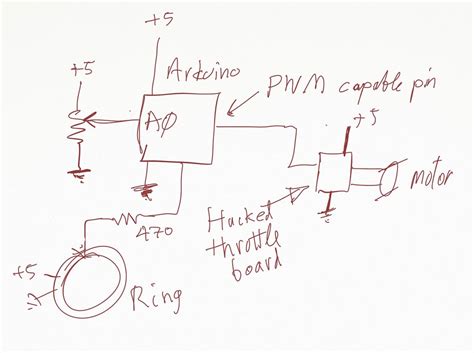 +5
Arduino
+5
PWM capable pin
AØ
+5
motor
Hacked
throttle
board
470
+5
Ring